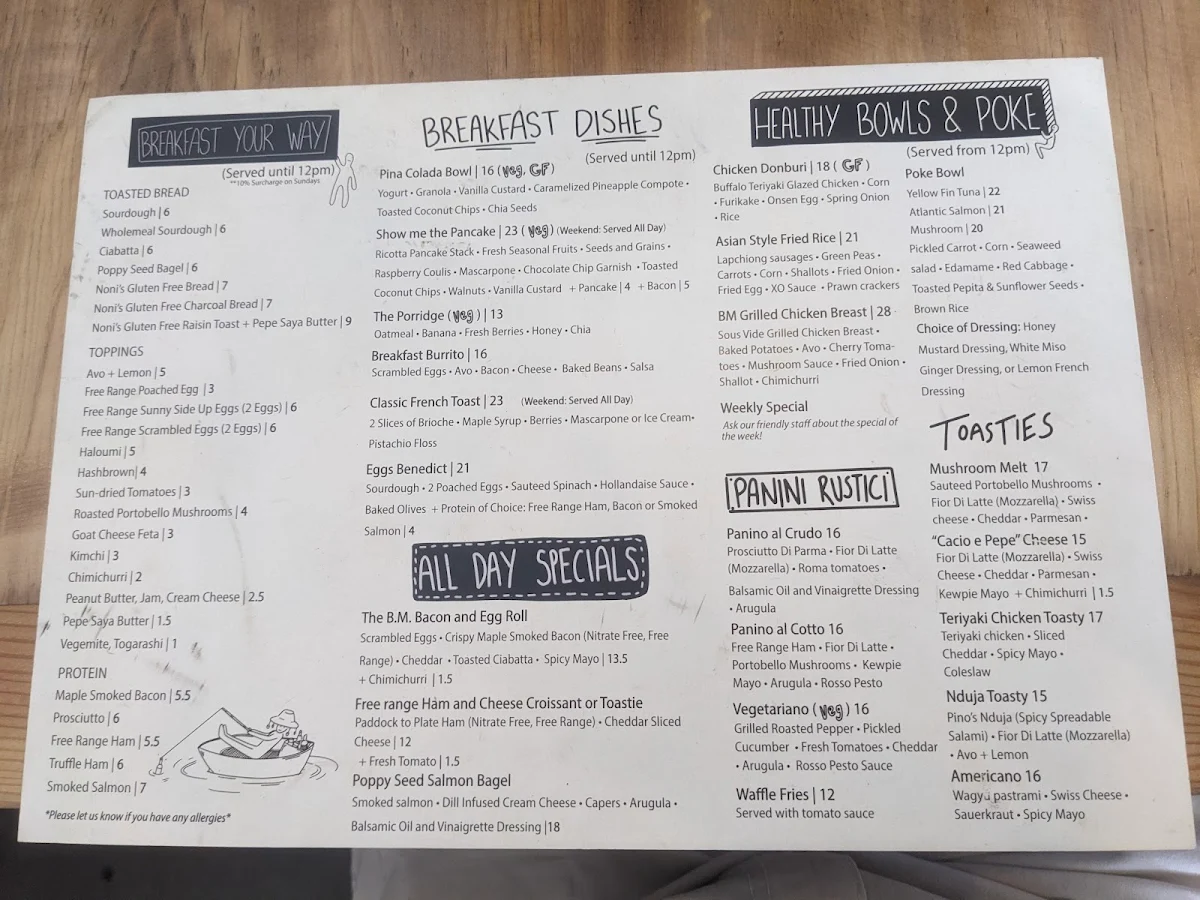 BREAKFAST YOUR WAY
(Served until 12pm)
**10% Surcharge on Sundays
TOASTED BREAD
Sourdough | 6
Wholemeal Sourdough | 6
Ciabatta | 6
Poppy Seed Bagel | 6
Noni's Gluten Free Bread | 7
Noni's Gluten Free Charcoal Bread | 7
Noni's Gluten Free Raisin Toast + Pepe Saya Butter | 9
TOPPINGS
Avo + Lemon | 5
Free Range Poached Egg | 3
Free Range Sunny Side Up Eggs (2 Eggs) | 6
Free Range Scrambled Eggs (2 Eggs) | 6
Haloumi | 5
Hashbrown| 4
Sun-dried Tomatoes | 3
Roasted Portobello Mushrooms | 4
Goat Cheese Feta | 3
Kimchi | 3
Chimichurri | 2
Peanut Butter, Jam, Cream Cheese | 2.5
Pepe Saya Butter | 1.5
Vegemite, Togarashi | 1
PROTEIN
Maple Smoked Bacon | 5.5
Prosciutto | 6
Free Range Ham | 5.5
Truffle Ham | 6
Smoked Salmon | 7
*Please let us know if you have any allergies*
BREAKFAST DISHES
(Served until 12pm)
Pina Colada Bowl | 16 (veg, GF)
Yogurt • Granola • Vanilla Custard • Caramelized Pineapple Compote •
Toasted Coconut Chips • Chia Seeds
Show me the Pancake | 23 (veg) (Weekend: Served All Day)
Ricotta Pancake Stack • Fresh Seasonal Fruits • Seeds and Grains •
Raspberry Coulis • Mascarpone • Chocolate Chip Garnish • Toasted
Coconut Chips • Walnuts • Vanilla Custard + Pancake | 4 + Bacon | 5
The Porridge (veg) | 13
Oatmeal • Banana • Fresh Berries • Honey • Chia
Breakfast Burrito | 16
Scrambled Eggs • Avo • Bacon • Cheese • Baked Beans • Salsa
Classic French Toast | 23 (Weekend: Served All Day)
2 Slices of Brioche • Maple Syrup • Berries • Mascarpone or Ice Cream•
Pistachio Floss
Eggs Benedict | 21
Sourdough • 2 Poached Eggs • Sauteed Spinach • Hollandaise Sauce •
Baked Olives + Protein of Choice: Free Range Ham, Bacon or Smoked
Salmon | 4
ALL DAY SPECIALS
The B.M. Bacon and Egg Roll
Scrambled Eggs • Crispy Maple Smoked Bacon (Nitrate Free, Free
Range) • Cheddar • Toasted Ciabatta • Spicy Mayo | 13.5
+ Chimichurri | 1.5
Free range Ham and Cheese Croissant or Toastie
Paddock to Plate Ham (Nitrate Free, Free Range) • Cheddar Sliced
Cheese | 12
+ Fresh Tomato | 1.5
Poppy Seed Salmon Bagel
Smoked salmon • Dill Infused Cream Cheese • Capers • Arugula •
Balsamic Oil and Vinaigrette Dressing |18
HEALTHY BOWLS & POKE
(Served from 12pm)
Chicken Donburi | 18 (GF)
Buffalo Teriyaki Glazed Chicken • Corn
• Furikake • Onsen Egg • Spring Onion
• Rice
Asian Style Fried Rice | 21
Lapchiong sausages • Green Peas •
Carrots • Corn • Shallots • Fried Onion •
Fried Egg • XO Sauce • Prawn crackers
BM Grilled Chicken Breast | 28
Sous Vide Grilled Chicken Breast •
Baked Potatoes • Avo • Cherry Toma-
toes • Mushroom Sauce • Fried Onion •
Shallot • Chimichurri
Weekly Special
Ask our friendly staff about the special of
the week!
Poke Bowl
Yellow Fin Tuna | 22
Atlantic Salmon | 21
Mushroom | 20
Pickled Carrot • Corn • Seaweed
salad • Edamame • Red Cabbage •
Toasted Pepita & Sunflower Seeds •
Brown Rice
Choice of Dressing: Honey
Mustard Dressing, White Miso
Ginger Dressing, or Lemon French
Dressing
PANINI RUSTICI
Panino al Crudo 16
Prosciutto Di Parma • Fior Di Latte
(Mozzarella) • Roma tomatoes •
Balsamic Oil and Vinaigrette Dressing
• Arugula
Panino al Cotto 16
Free Range Ham • Fior Di Latte •
Portobello Mushrooms • Kewpie
Mayo • Arugula • Rosso Pesto
Vegetariano (veg) 16
Grilled Roasted Pepper • Pickled
Cucumber • Fresh Tomatoes • Cheddar
• Arugula • Rosso Pesto Sauce
Waffle Fries | 12
Served with tomato sauce
TOASTIES
Mushroom Melt 17
Sauteed Portobello Mushrooms •
Fior Di Latte (Mozzarella) • Swiss
cheese • Cheddar • Parmesan •
"Cacio e Pepe" Cheese 15
Fior Di Latte (Mozzarella) • Swiss
Cheese • Cheddar • Parmesan •
Kewpie Mayo + Chimichurri | 1.5
Teriyaki Chicken Toasty 17
Teriyaki chicken • Sliced
Cheddar • Spicy Mayo •
Coleslaw
Nduja Toasty 15
Pino's Nduja (Spicy Spreadable
Salami) • Fior Di Latte (Mozzarella)
• Avo + Lemon
Americano 16
Wagyu pastrami • Swiss Cheese •
Sauerkraut • Spicy Mayo